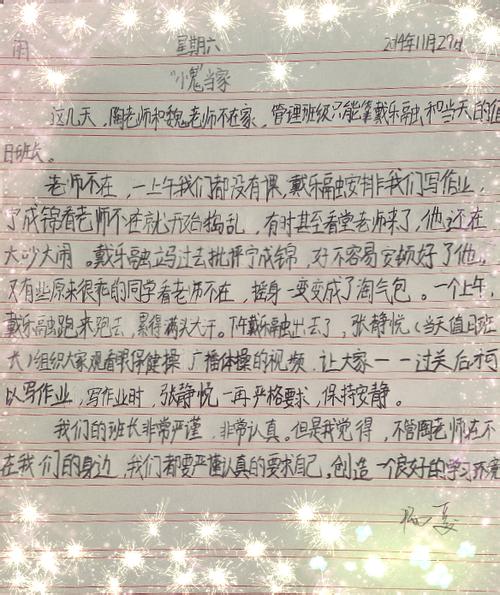 雨 星期六 2014年11月29日
"小鬼"当家
这几天，陶老师和魏老师不在家，管理班级只能靠戴乐融和当天的值
日班长。
老师不在，一上午我们都没有课，戴乐融安排我们写作业，
宁成锦看老师不在就开始捣乱，有时甚至看堂老师来了，他还在
大吵大闹。戴乐融立马过去批评宁成锦，好不容易安顿好了他，
又有些原来很乖的同学看老师不在，摇身一变变成了淘气包。一个上午，
戴乐融跑来跑去，累得满头大汗。下午戴乐融出去了，张静悦（当天值日班
长）组织大家观看眼保健操、广播体操的视频，让大家一一过关后才可
以写作业，写作业时，张静悦一再严格要求，保持安静。
我们的班长非常严谨，非常认真。但是我觉得，不管陶老师在不
在我们的身边，我们都要严谨认真的要求自己，创造一个良好的学习环境